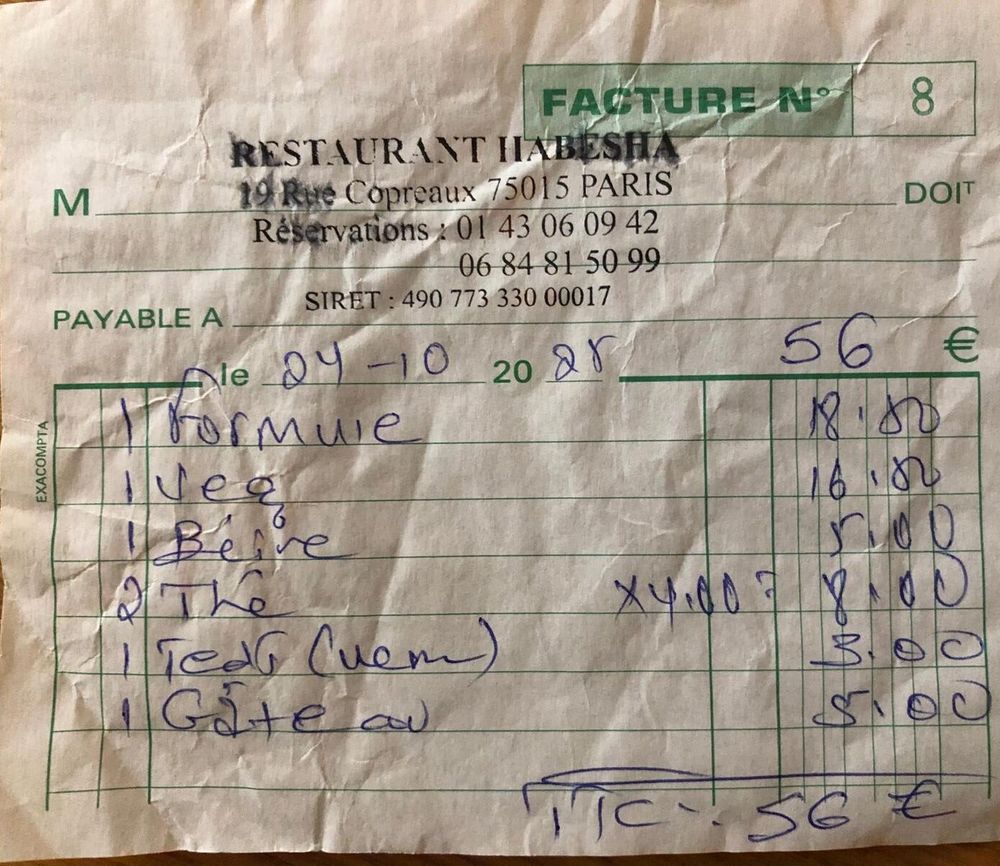 FACTURE N° 8
RESTAURANT HABESHA
19 Rue Copreaux 75015 PARIS
M DOIT
Réservations : 01 43 06 09 42
06 84 81 50 99
SIRET : 490 773 330 00017
PAYABLE A
le 24-10 20 25 56 €
EXACOMPTA
1 Formule 18.50
1 Veg 16.50
1 Béire 5.00
2 Thé x4.00 = 8.00
1 (verre) 3.00
1 Gâteau 5.00
TTC - 56 €